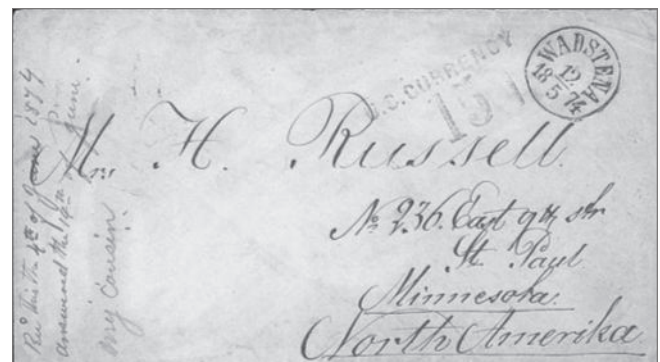 WADSTENA
12
18 5 74
U.S. CURRENCY
15
Mrs H. Russell.
No 236. East 9th str
St. Paul
Minnesota.
North Amerika.
this the 4th of 1874
answered the June.
my cousin.